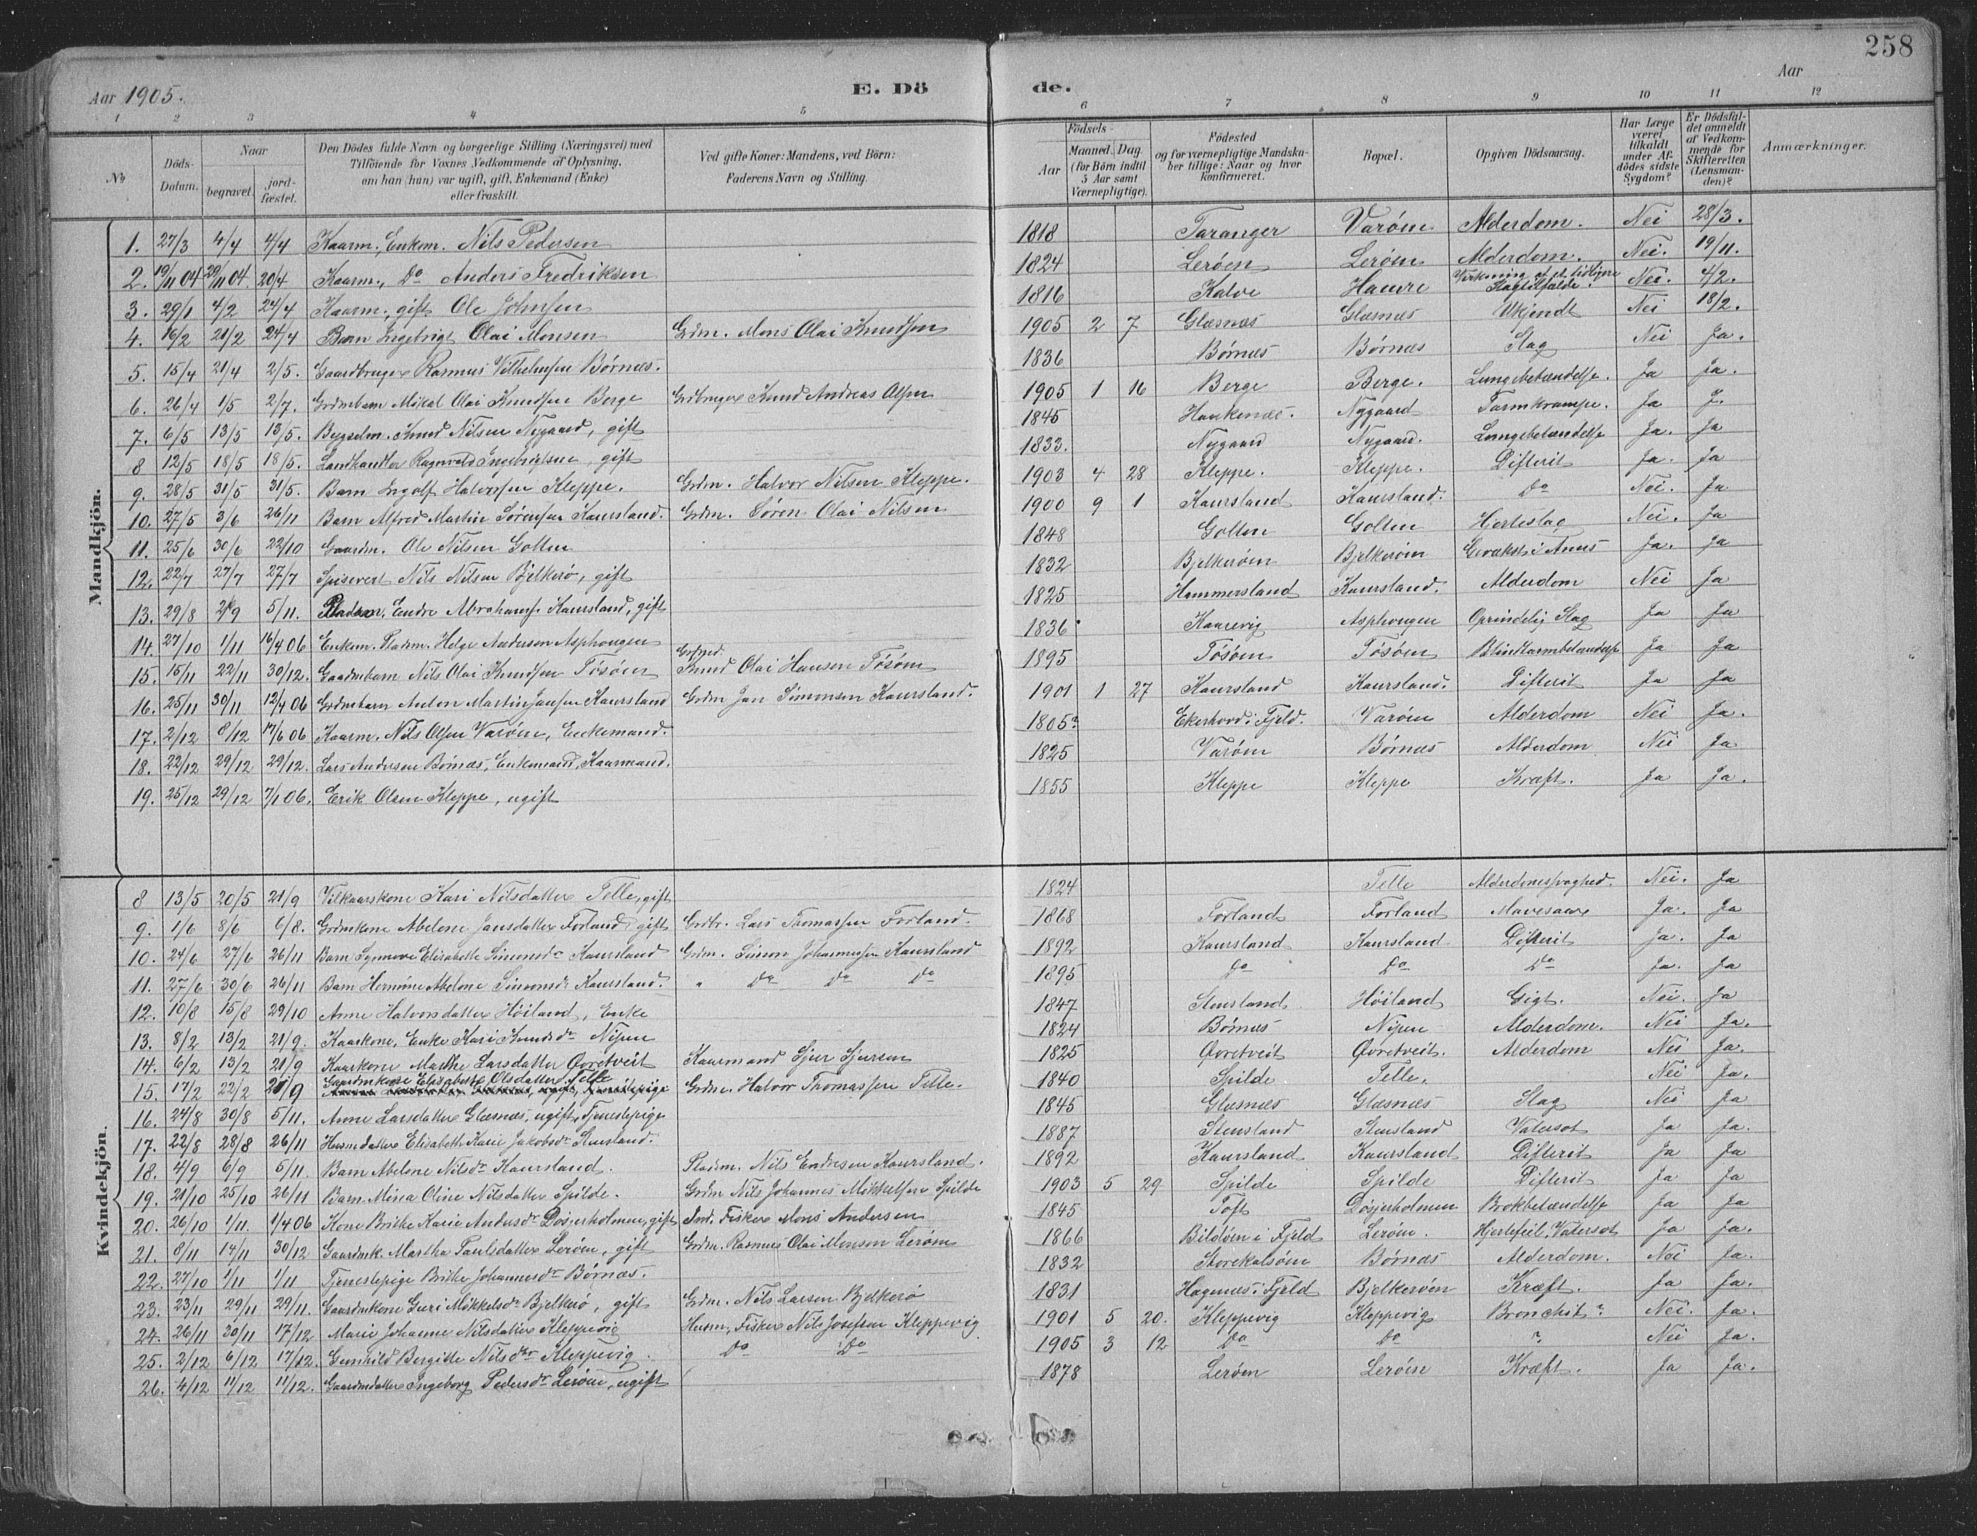 258
Aar 1905.
E. Dö de.
Aar
1 2 3 4 5 6 7 8 9 10 11 12
№
Döds-Datum.
Naar
begravet.
jord-fæstet.
Den Dödes fulde Navn og borgerlige Stilling (Næringsvei) med
Tilföiende for Voxnes Vedkommende af Oplysning,
om han (hun) var ugift, gift, Enkemand (Enke)
eller fraskilt.
Ved gifte Koner: Mandens, ved Börn:
Faderens Navn og Stilling.
Födsels-
Aar
Maaned. Dag.
(for Börn indtil
5 Aar samt
Værnepligtige).
Födested
og for værnepligtige Mandska-
ber tillige: Naar og hvor
konfirmeret.
Bopæl.
Opgiven Dödsaarsag.
Har Læge
været
tilkaldt
under Af-
dödes sidste
Sygdom?
Er Dödsfal-
det anmeldt
af Vedkom-
mende for
Skifteretten
(Lensman-
den)?
Anmærkninger.
Mandkjön.
1. 27/3 4/4 4/4 Kaarm. Enkem. Nils Pedersen 1818 Taranger Varøen Alderdom. Nei 28/3.
2. 19/11 04 29/11 04 20/4 Kaarm., Do Anders Fredriksen 1824 Lerøen Lerøen Alderdom. Nei. 19/11.
3. 29/1 4/2 24/4 Kaarm., gift Ole Johnsen 1816 Kalve Haure Virkning af et tidligere Slagtilfælde. Nei. 4/2.
4. 16/2 21/2 24/4 Barn Ingebrigt Olai Monsen Grdm. Mons Olai Knudsen 1905 2 7 Glæsnæs Glæsnæs Ukjendt Nei 18/2.
5. 15/4 21/4 2/5. Gaardbruger Rasmus Vilhelmsen Børnæs. 1836 Børnæs Børnæs Slag Nei Ja.
6. 26/4 1/5 2/7. Grdmbarn Mikal Olai Knudsen Berge Grdbruger Knud Andreas Olsen 1905 1 16 Berge Berge. Lungebetændelse. Ja Ja.
7. 6/5 13/5 13/5. Bygselm. Knud Nilsen Nygaard, gift 1845 Haukenæs. Nygaard Tarmkrampe. Ja J.
8 12/5 18/5 18/5. Landhandler Ragnvald Ingebrigtsen, gift 1833. Nygaard Nygaard. Lungebetændelse Ja. Ja
9. 28/5 31/5 31/5. Barn Ingolf Halvorsen Kleppe. Grdm. Halvor Nilsen Kleppe. 1903 4 28 Kleppe. Kleppe. Difterit Ja. Ja
10. 27/5 3/6 26/11 Barn Alfred Martin Sørensen Kaursland. Grdm. Søren Olai Nilsen 1900 9 1 Kaursland Kaursland. Do Nei. Ja
11. 25/6 30/6 22/10 Gaardm. Ole Nilsen Golten 1848 Golten Golten Hjerteslag Nei. Ja
12. 22/7 27/7 27/7 Spisevert Nils Nilsen Bjelkerø, gift 1832 Bjelkerøen Bjelkerøen Gevækst i Anus Ja. Ja
13. 29/8 2/9 5/11. Pladsm. Endre Abrahamsen Kaursland, gift 1825 Hammersland Kaursland. Alderdom Nei Ja
14. 27/10 1/11 16/4 06 Enkem. Pladsm. Helge Andersen Asphougen 1836 Kaarevig Asphougen Oprindelig Slag Ja Ja
15. 15/11 22/11 30/12. Gaardmbarn Nils Olai Knudsen Tøsøen Knud Olai Hansen Tøsøen 1895 Tøsøen Tøsøen Blindtarmbetændelse Ja Ja
16. 25/11 30/11 12/4 06 Grdmbarn Anton Martin Jansen Kaursland Grdm Jan Simonsen Kaursland. 1901 1 27 Kaursland Kaursland. Difterit Ja Ja
17. 2/12 8/12 17/6 06 Kaarm. Nils Olsen Varøen, Enkemand. 1805? Ekerhovd i Fjeld. Varøen Alderdom Nei Ja.
18. 22/12 29/12 29/12. Lars Andersen Børnæs, Enkemand, Kaarmand. 1825 Varøen Børnæs Alderdom Nei Ja.
19. 25/12 29/12 7/1 06. Erik Olsen Kleppe, ugift 1855 Kleppe Kleppe Kræft. Ja Ja.
Kvindekjön.
8 13/5 20/5 21/9 Vilkaarskone Kari Nilsdatter Telle, gift 1824 Telle Alderdomssvaghed. Nei. Ja
9. 1/6 8/6 6/8. Grdmkone Abelone Jansdatter Forland, gift Grdbr. Lars Thomassen Forland. 1868 Forland Forland Mavesaar Ja. Ja
10. 24/6 27/6 26/11 Barn Synneve Elisabeth Simonsdr Kaursland Grdm. Simon Johannessen Kaursland 1892 Kaursland Kaursland Difterit Ja. Ja
11. 27/6 30/6 26/11 Barn Hermine Abelone Simonsdr Kaursland. " Do Do Do 1895 Do Do Do Ja. Ja
12. 10/8 15/8 29/10 Anne Halvorsdatter Høiland, Enke 1847 Stensland Høiland Gigt. Nei. Ja
13. 8/2 13/2 21/9. Kaarkone, Enke Kari Knudsdr Nipen 1824 Børnæs Nipen Alderdom. Nei Ja.
14. 6/2 13/2 21/9 Kaarkone Marthe Larsdatter Øvretveit Kaarmand Sjur Sjursen 1825 Øvretveit Øvretveit. Alderdom Nei Ja.
15. 17/2 22/2 21/9 Gaardmkone Elisabeth Olsdatter Telle Grdm. Halvor Thomassen Telle. 1840 Spilde Telle. Nei Ja.
16. 24/8 30/8 5/11. Anne Larsdatter Glæsnæs, ugift, Tjenestepige 1845 Glæsnæs Glæsnæs Slag Nei Ja
17. 22/8 28/8 26/11 Husmdatter Elisabeth Karie Jakobsdr Stensland. 1887 Stensland Stensland Vatersot Ja Ja.
18. 4/9 6/9 5/11. Barn Abelone Nilsdr Kaursland. Pladsm. Nils Endresen Kaursland. 1892 Kaursland Kaursland Difterit Ja Ja
19. 21/10 25/10 26/11 Barn Mina Oline Nilsdatter Spilde. Grdm Nils Johannes Mikkelsen Spilde 1903 5 29 Spilde Spilde Difterit Ja Ja
20. 26/10 1/11. 1/4 06 Kone Brithe Karie Andersdr Dosjerholmen, gift Fisker Mons Andersen 1845 Toft Dosjerholmen Brokbetændelse Ja Ja
21. 8/11 14/11 30/12 Gaardmk. Martha Paulsdatter Lerøen, gift Grdm. Rasmus Olai Monsen Lerøen 1866 Bildøen i Fjeld Lerøen. Hjertefeil, Vatersot Ja Ja.
22. 27/10 1/11 1/11 Tjenestepige Brithe Johannesdr Børnæs. 1832 Storekalsøen Børnæs Alderdom. Nei Ja.
23. 23/11 29/11 29/11. Gaardmkone Guri Mikkelsdr Bjelkerø, gift Grdm. Nils Larsen Bjelkerø 1831 Hagenæs i Fjeld Bjelkerøen Kræft. Ja Ja
24. 26/11 30/11 17/12 Marie Johanne Nilsdatter Kleppevig Husm, Fisker Nils Josefsen Kleppevig 1901 5 20. Kleppevig Kleppevig Bronchit? Nei. Ja.
25. 2/12 6/12 17/12. Gunhild Bergitte Nilsdtr Kleppevig. Do Do 1905 3 12 Do Do ? Nei Ja.
26. 4/12 11/12 11/12. Gaardmdatter Ingeborg Pedersdr Lerøen, ugift 1878 Lerøen Lerøen Kræft. Ja Ja.